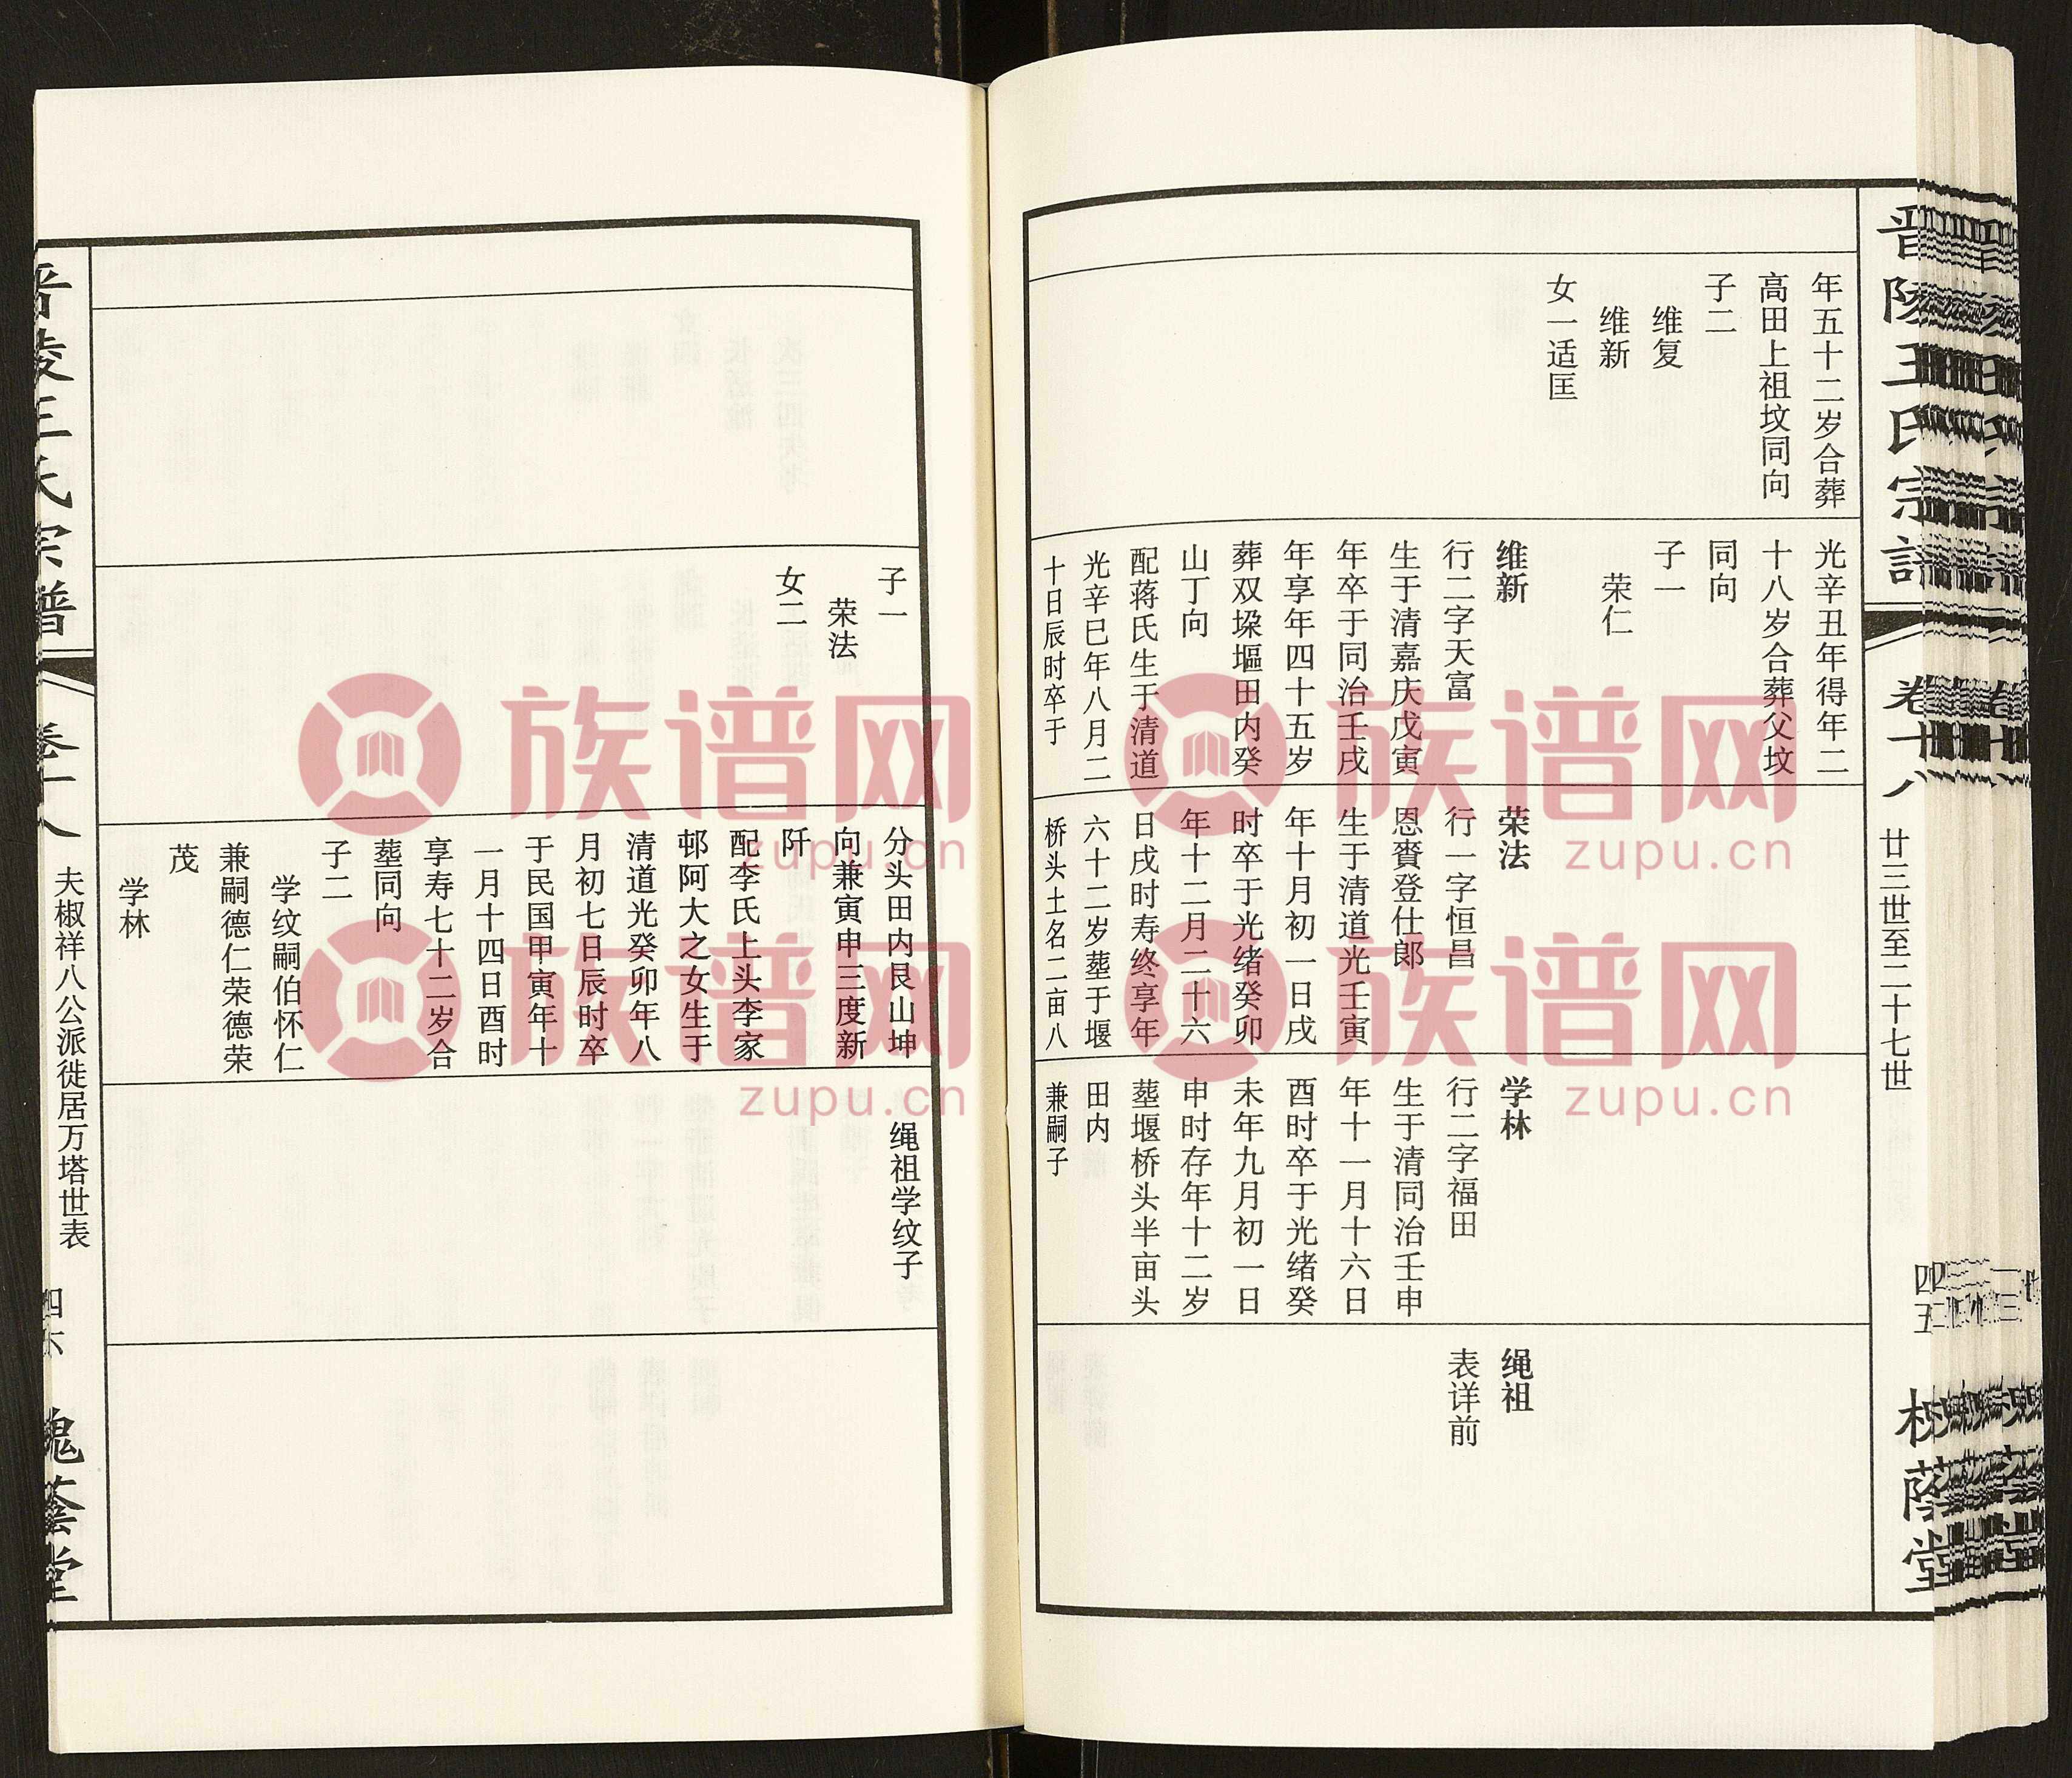 晋陵王氏宗谱
卷十八
廿三世至二十七世
四五
槐荫堂
年五十二岁合葬
高田上祖坟同向
子二
维复
维新
女一适匡
光辛丑年得年二
十八岁合葬父坟
同向
子一
荣仁
维新
行二字天富
生于清嘉庆戊寅
年卒于同治壬戌
年享年四十五岁
葬双垛塸田内癸
山丁向
配蒋氏生于清道
光辛巳年八月二
十日辰时卒于
荣法
行一字恒昌
恩赉登仕郎
生于清道光壬寅
年十月初一日戌
时卒于光绪癸卯
年十二月二十六
日戌时寿终享年
六十二岁塟于堰
桥头土名二亩八
学林
行二字福田
生于清同治壬申
年十一月十六日
酉时卒于光绪癸
未年九月初一日
申时存年十二岁
塟堰桥头半亩头
田内
兼嗣子
绳祖
表详前
子一
荣法
女二
分头田内艮山坤
向兼寅申三度新
阡
配李氏上头李家
邨阿大之女生于
清道光癸卯年八
月初七日辰时卒
于民国甲寅年十
一月十四日酉时
享寿七十二岁合
塟同向
子二
学纹嗣伯怀仁
兼嗣德仁荣德荣
茂
学林
绳祖学纹子
晋陵王氏宗谱
卷十八
夫椒祥八公派徙居万塔世表
四六
槐荫堂
族谱网
zupu.cn
族谱网
zupu.cn
族谱网
zupu.cn
族谱网
zupu.cn